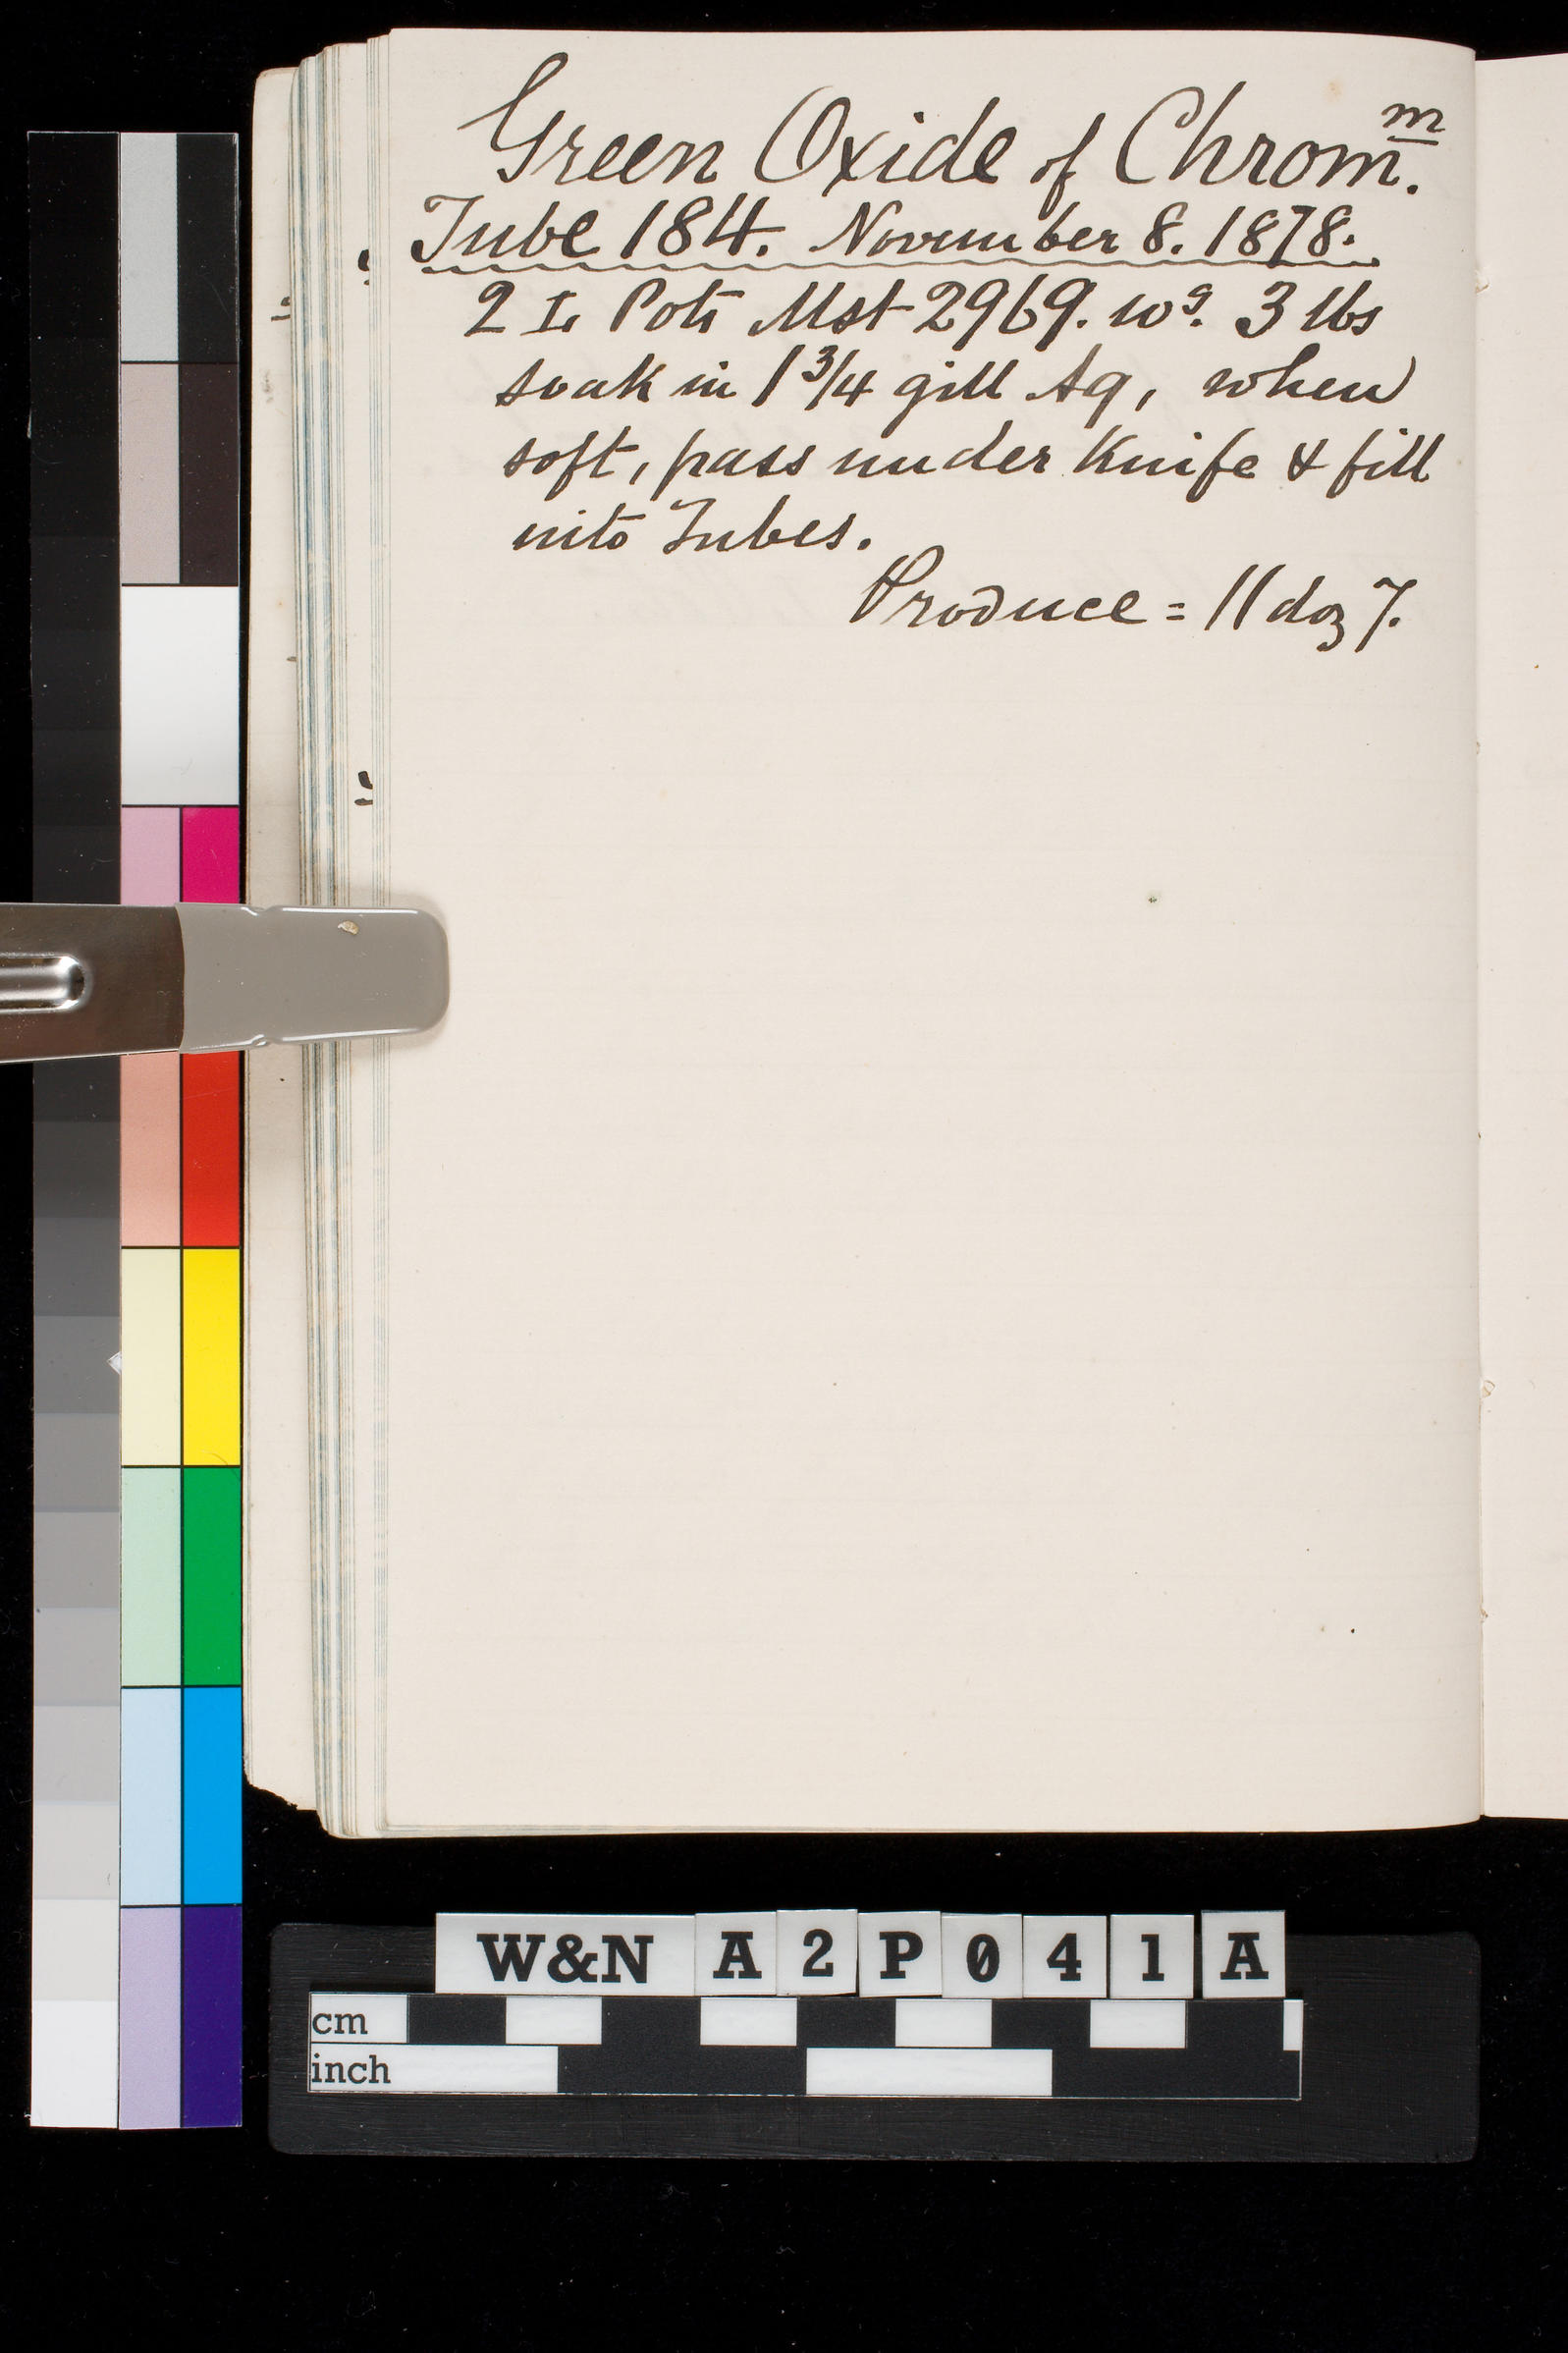 Green Oxide of Chrom.m
Tube 184. November 8. 1878.
2 L Pots Mst 2969. wg. 3 lbs
soak in 1 3/4 gill Aq, when
soft, pass under Knife & fill
into Tubes.
Produce = 11 doz 7.
W&N A2P041A
cm
inch